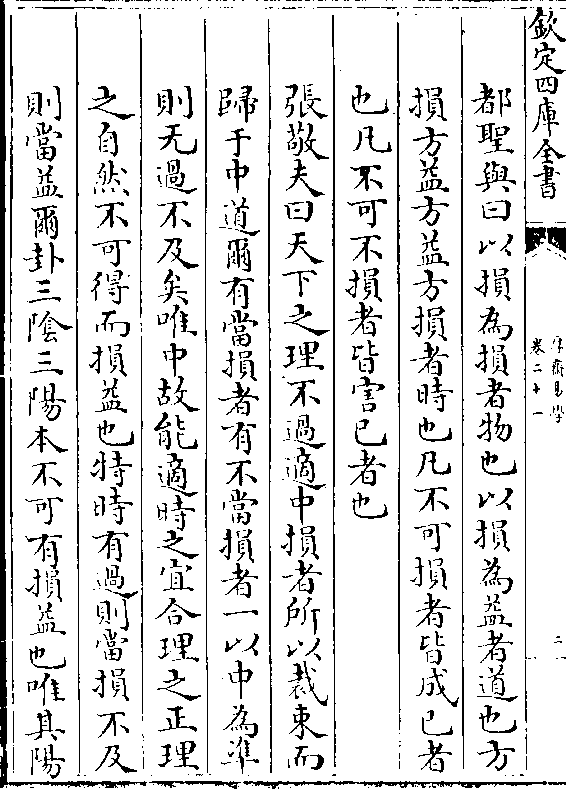 欽定四庫全書
厚齋易學
卷二十一
二
都聖與曰以損為損者物也以損為益者道也方
損方益方益方損者時也凡不可損者皆成已者
也凡不可不損者皆害已者也
張敬夫曰天下之理不過適中損者所以裁束而
歸于中道爾有當損者有不當損者一以中為準
則无過不及矣唯中故能適時之宜合理之正理
之自然不可得而損益也特時有過則當損不及
則當益爾卦三陰三陽本不可有損益也唯其陽